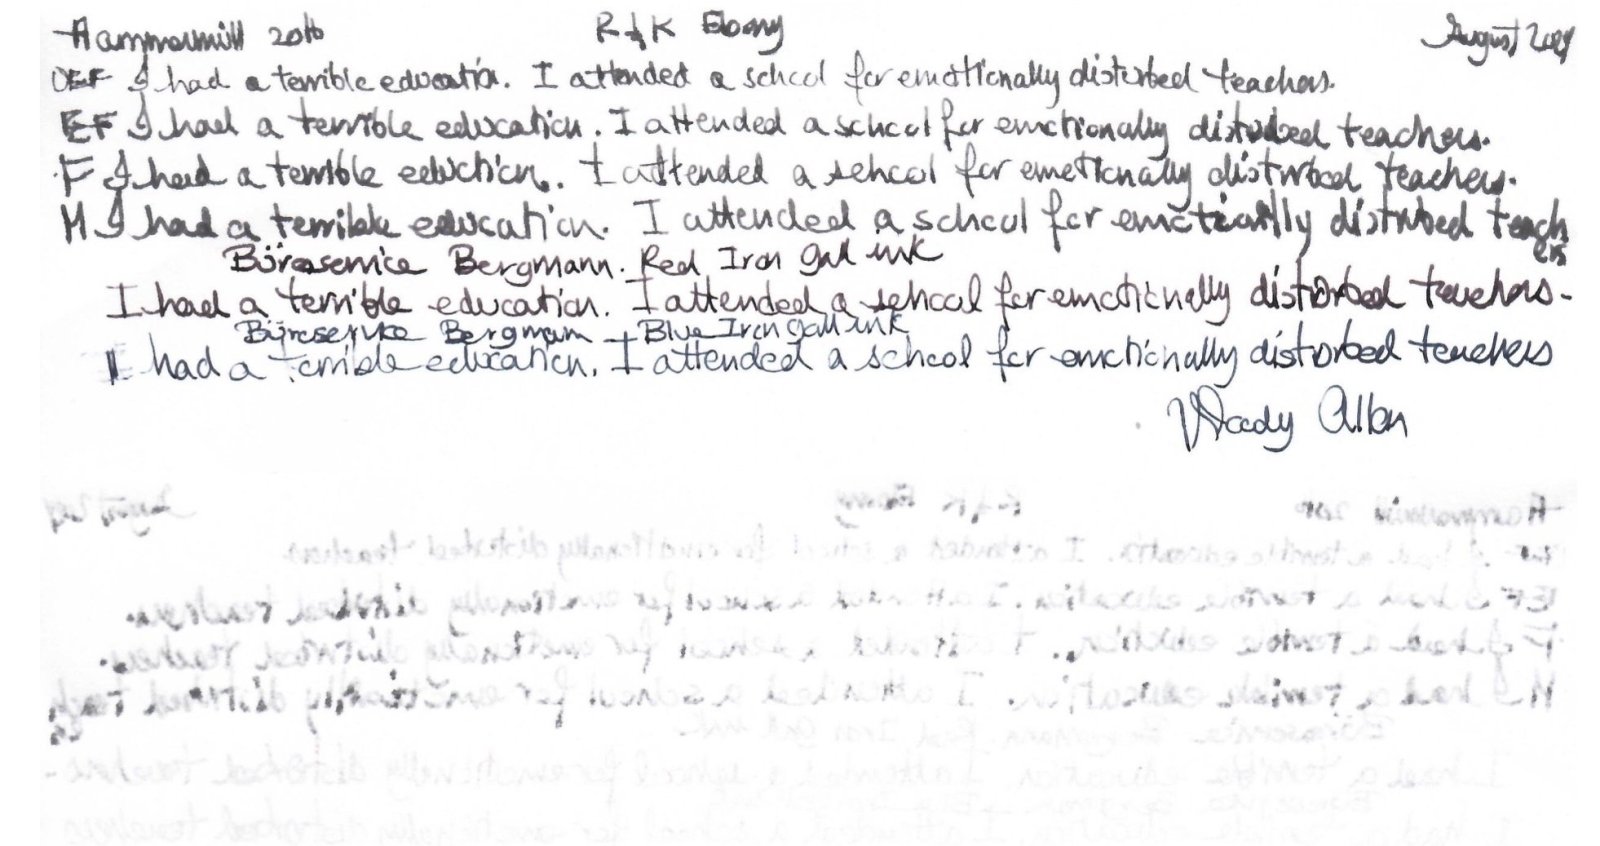 Hammermill 20lb R&K Ebony August 2021
OEF I had a terrible education. I attended a school for emotionally disturbed teachers.
EF I had a terrible education. I attended a school for emotionally disturbed teachers.
F I had a terrible eduction. I attended a school for emotionally disturbed teachers.
M I had a terrible education. I attended a school for emotionally disturbed teach
ers
Büroservice Bergmann. Red Iron gall ink
I had a terrible education. I attended a school for emotionally distorbed teachers.
Büroservice Bergmann - Blue Iron gall ink
I had a terrible education. I attended a school for emotionally distorbed teachers
Woody Allen